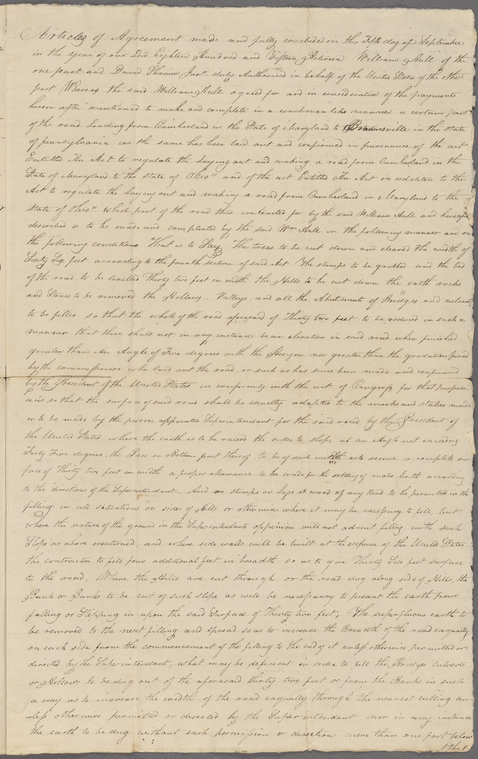 Articles of Agreement made and fully concluded on the Fifth day of September
in the year of our Lord Eighteen Hundred and Fifteen Between William Hull of the
one part and David Shriver, Junr. duly Authorized in behalf of the United States of the other
part Whereas the said William Hull agreed for and in consideration of the payments
herein after mentioned to make and complete in a workman like manner a certain part
of the road leading from Cumberland in the State of Maryland to Brownsville in the state
of pennsylvania as the same has been laid out and confirmed in pursuance of the act
Entitled An Act to regulate the laying out and making a road from Cumberland in the
State of Maryland to the state of Ohio" and of the act Entitled An Act in addition to the
Act to regulate the laying out and making a road from Cumberland in Maryland to the
State of Ohio" Which part of the road thus contracted for by the said William Hull and hereafter
described is to be made and completed by the said Wm Hull in the following manner and on
the following conditions That is to Say The trees to be cut down and cleared the width of
Sixty Six feet according to the fourth section of said Act The stumps to be grubed and the bed
of the road to be levelled Thirty two feet in width the Hills to be cut down the earth rocks
and Stones to be removed the Hollows, Valleys and all the Abutments of Bridges and culverts
to be filled so that the whole of the road aforesaid of Thirty two feet to be reduced in such a
manner that there shall not in any instance be an elevation in said road when finished
greater than An Angle of Five degrees with the Horizon nor greater than the gradation fixed
by the commissioners who laid out the road or such as has since been made and confirmed
by the President of the United States in conformity with the act of Congress for that purpose
and so that the surface of said road shall be exactly adapted to the marks and stakes made
or to be made by the person appointed Superintendant for the said road by the President of
the United States where the earth is to be raised the sides to slope at an Angle not exceeding
Forty Five degrees, the Base or Bottom part thereof to be of such width as to secure a complete sur-
face of Thirty two feet in width a proper allowance to be made for the settling of made earth according
to the directions of the Superintendant. And no stumps or logs or wood of any kind to be permitted in the
filling in all situations on sides of Hills or otherwise where it may be necessary to fill, but
where the nature of the ground in the Superintendants oppinion will not admit filling with such
Slope as above mentioned, and where side walls will be built at the expense of the United States
the contractor to fill four additional feet in breadth so as to give Thirty Six feet surface
to the road, When the Hills are cut through or the road dug along side of Hills, the
Bank or Banks to be cut of such slope as will be necessary to prevent the earth from
falling or Slipping in upon the said Surface of Thirty two feet, The superfluous earth to
be removed to the next filling and spread so as to increase the Breadth of the road equally
on each side from the commencement of the filling to the end of it unless otherwise permitted or
directed by the Superintendant, what may be deficient in order to fill the Bridges culverts
or Hollows to be dug out of the aforesaid thirty two feet or from the Banks in such
a way as to increase the width of the road equally through the nearest cutting un-
less otherwise permitted or directed by the Superintendant nor in any instance
the earth to be dug without such permission or direction more than one foot below